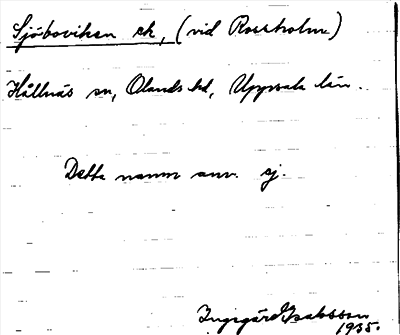 Sjöboviken vk, (vid Rossholm)
Hållnäs sn, Olands hd, Uppsala län.
Detta namn anv. ej.
Ingegärd Isaksson
1935.